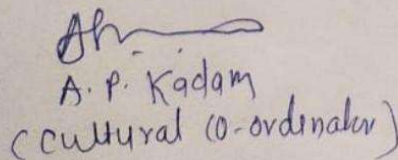 A. P. Kadam
(Cultural Co-ordinator)